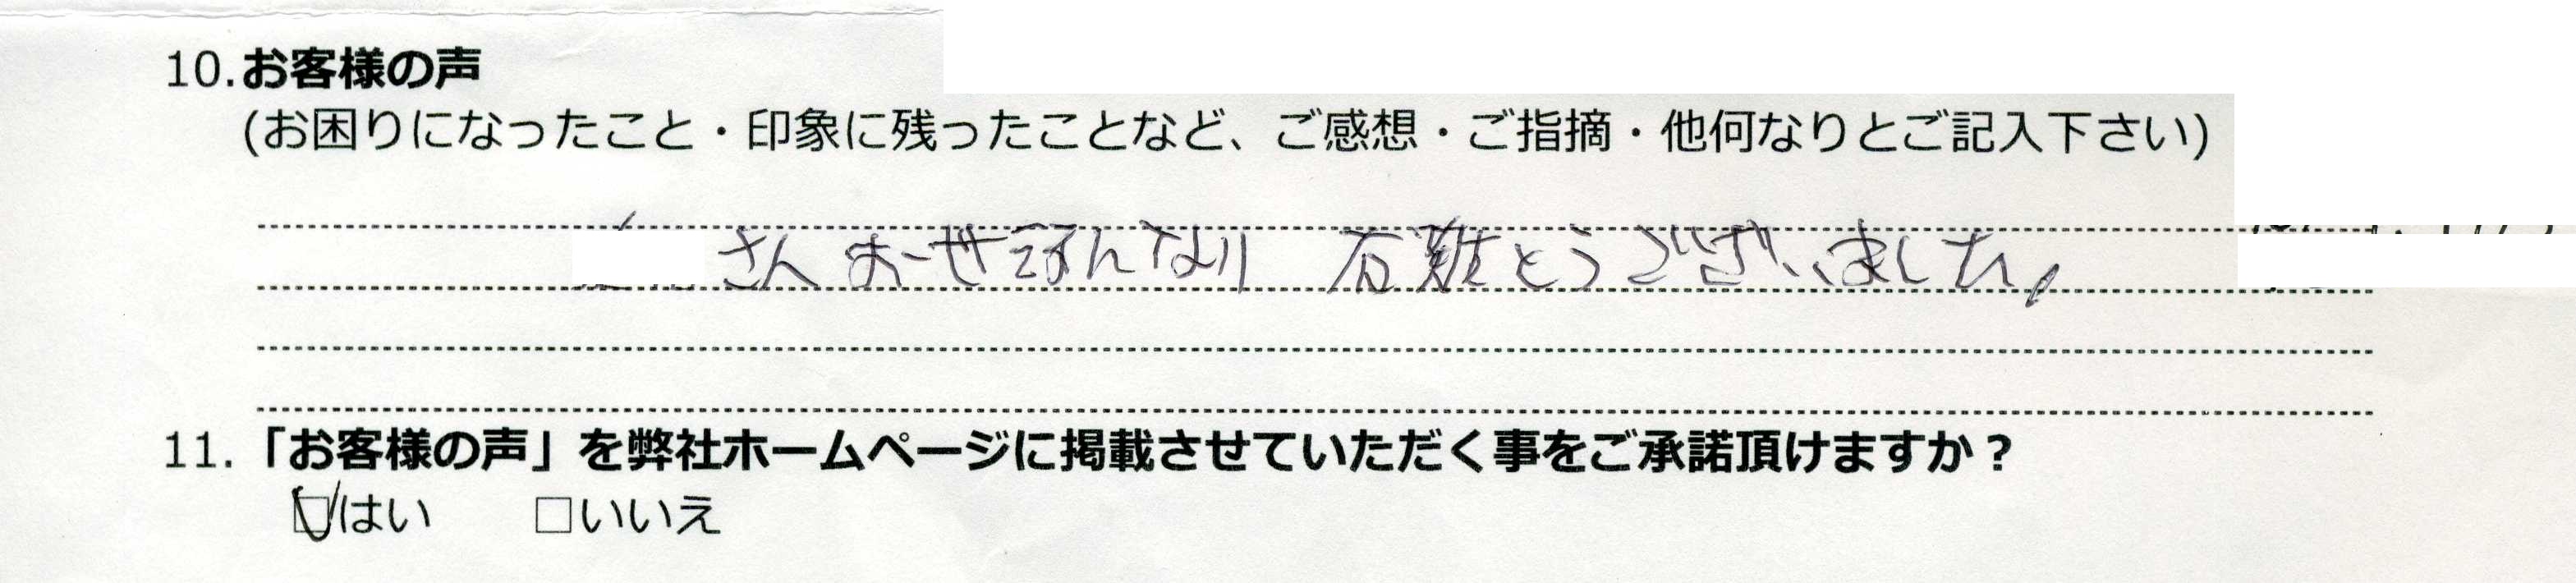 10.お客様の声
(お困りになったこと・印象に残ったことなど、ご感想・ご指摘・他何なりとご記入下さい)
さん お世話になり 有難とうございました。
11.「お客様の声」を弊社ホームページに掲載させていただく事をご承諾頂けますか？
☑はい　□いいえ